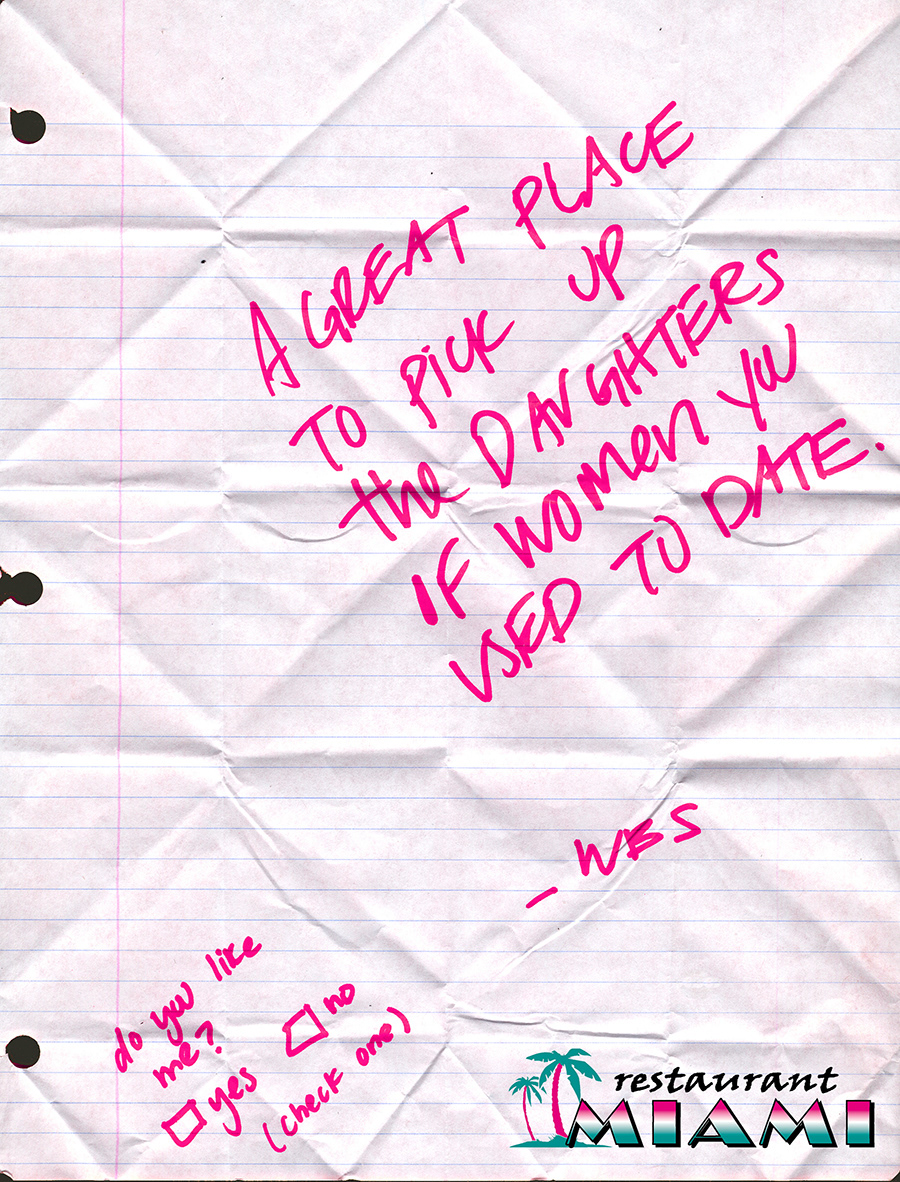 A GREAT PLACE
TO PICK UP
the DAUGHTERS
IF WOMEN YOU
USED TO DATE.
- WES
do you like
me?
yes
no
(check one)
restaurant
MIAMI